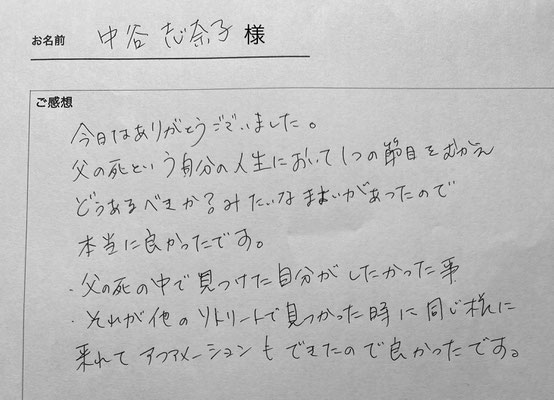 お名前 中谷 志奈子 様
ご感想
今日はありがとうございました。
父の死という自分の人生において1つの節目をむかえ
どうあるべきか?みたいなまよいがあったので
本当に良かったです。
・父の死の中で見つけた自分がしたかった事
・それが他のリトリートで見つかった時に同じ様に
来れてアファメーションもできたので良かったです。